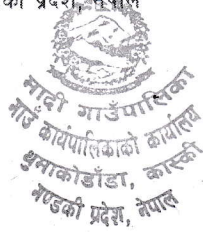 की प्रदेश, नेपाल
मादी गाउँपालिका
गाउँ कार्यपालिकाको कार्यालय
थुमाकोडाँडा, कास्की
गण्डकी प्रदेश, नेपाल